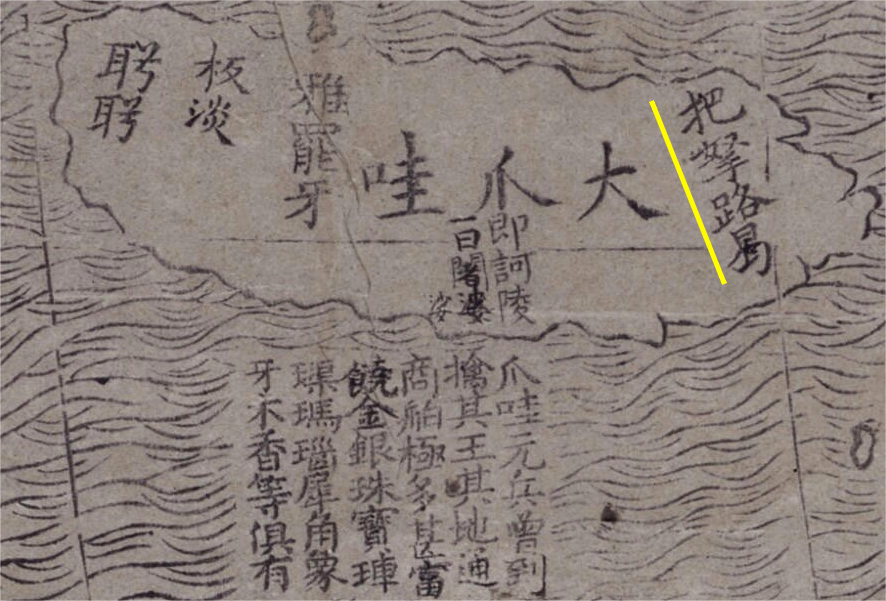 大爪哇
即訶陵
一曰闍婆
雅罷牙
板淡
聘聘
爪哇元兵曾到
擒其王其地通
商舶極多甚富
饒金銀珠寶
瑪瑙犀角象
牙木香等俱有